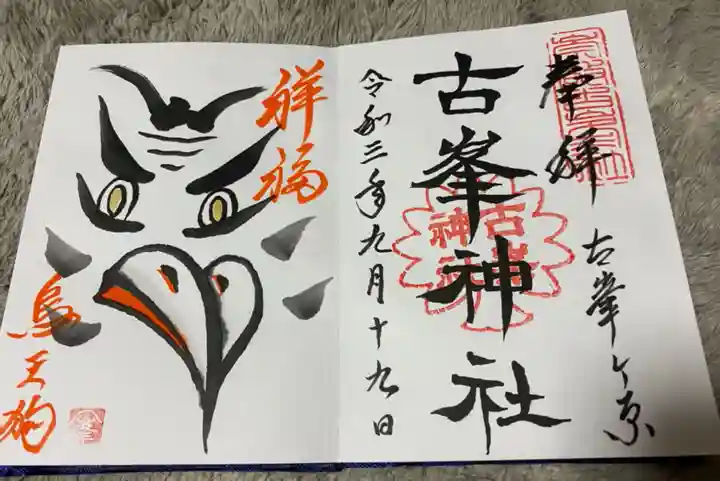 奉拝
古峯ヶ原
古峯神社
古峯
神社
令和三年九月十九日
祥福
烏天狗